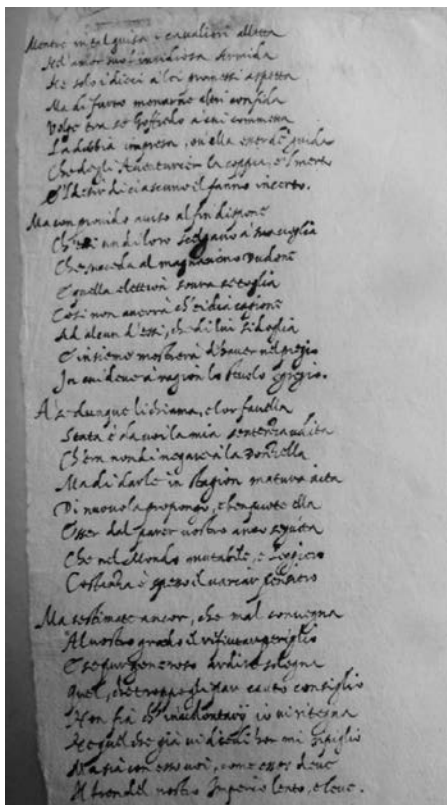 Mentre in tal guisa i cavalieri alletta
Ne l'amor suo l'insidiosa Armida
Ne solo i dieci à lei promessi aspetta
Ma di furto menarne altri confida
Volge tra sè Goffredo à cui commetta
La dubbia impresa, ov'ella esser dè guida
Che degli Aventurier la coppia, e'l merto
E'l desir di ciascuno il fanno incerto.
Ma con provido aviso al fin dispone
Ch'essi un di loro scelgano à sua voglia
Che succeda al magnanimo Dudone
E quella elettion sovra se toglia
Così non averrà ch'ei dia cagione
Ad alcun d'essi, che di lui si doglia
E insieme mostrerà d'haver nel pregio
In cui deve à ragion lo stuolo egregio.
A se dunque li chiama, e lor favella
Stata è da voi la mia sentenza udita
Ch'era non di negare à la Donzella
Ma di darle in stagion matura aita
Di nuovo la propongo, e ben puote ella
Esser dal parer vostro anco seguita
Che nel Mondo mutabile, e leggiero
Costanza è spesso il variar pensiero
Ma se stimate ancor, che mal convegna
Al vostro grado il rifiutar periglio
E se pur generoso ardire sdegna
Quel, che troppo gli par cauto consiglio
Non sia ch'involontarij io vi ritegna
Ne quel che già vi diedi hor mi ripiglio
Ma sia con esso voi, come esser deve
Il fren del nostro Imperio lento, e leve.